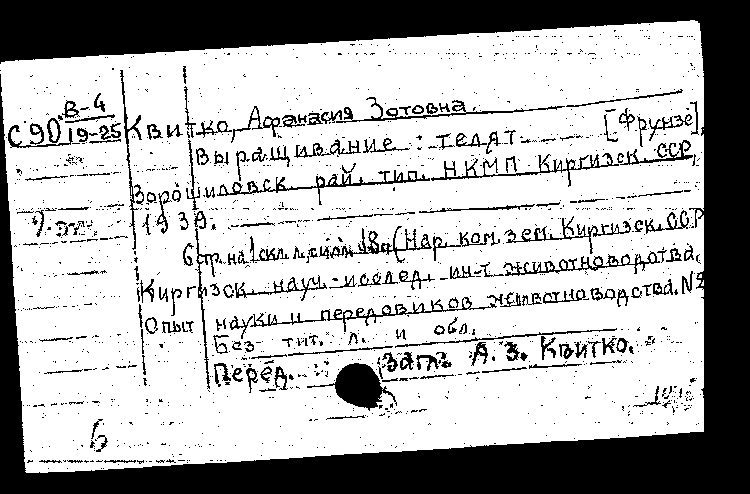 В-4
С90 19-25
Квитко, Афанасия Зотовна.
Выращивание телят [Фрунзе],
Ворошиловск. рай. тип. НКМП Киргизск. ССР,
1939.
6 стр. на 1 скл. л. 18 (Нар. ком. зем. Киргизск. ССР
Киргизск. науч.-исслед. ин-т животноводства.
Опыт науки и передовиков животноводства. №2
Без тит. л. и обл.
Перед. загл. А. З. Квитко.
6